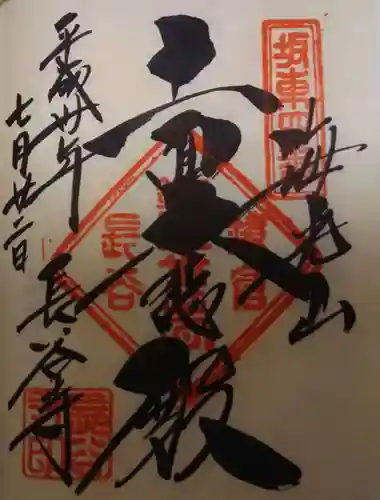 坂東四番
海光山
十一面大悲殿
長谷寺
平成廿年
七月廿二日